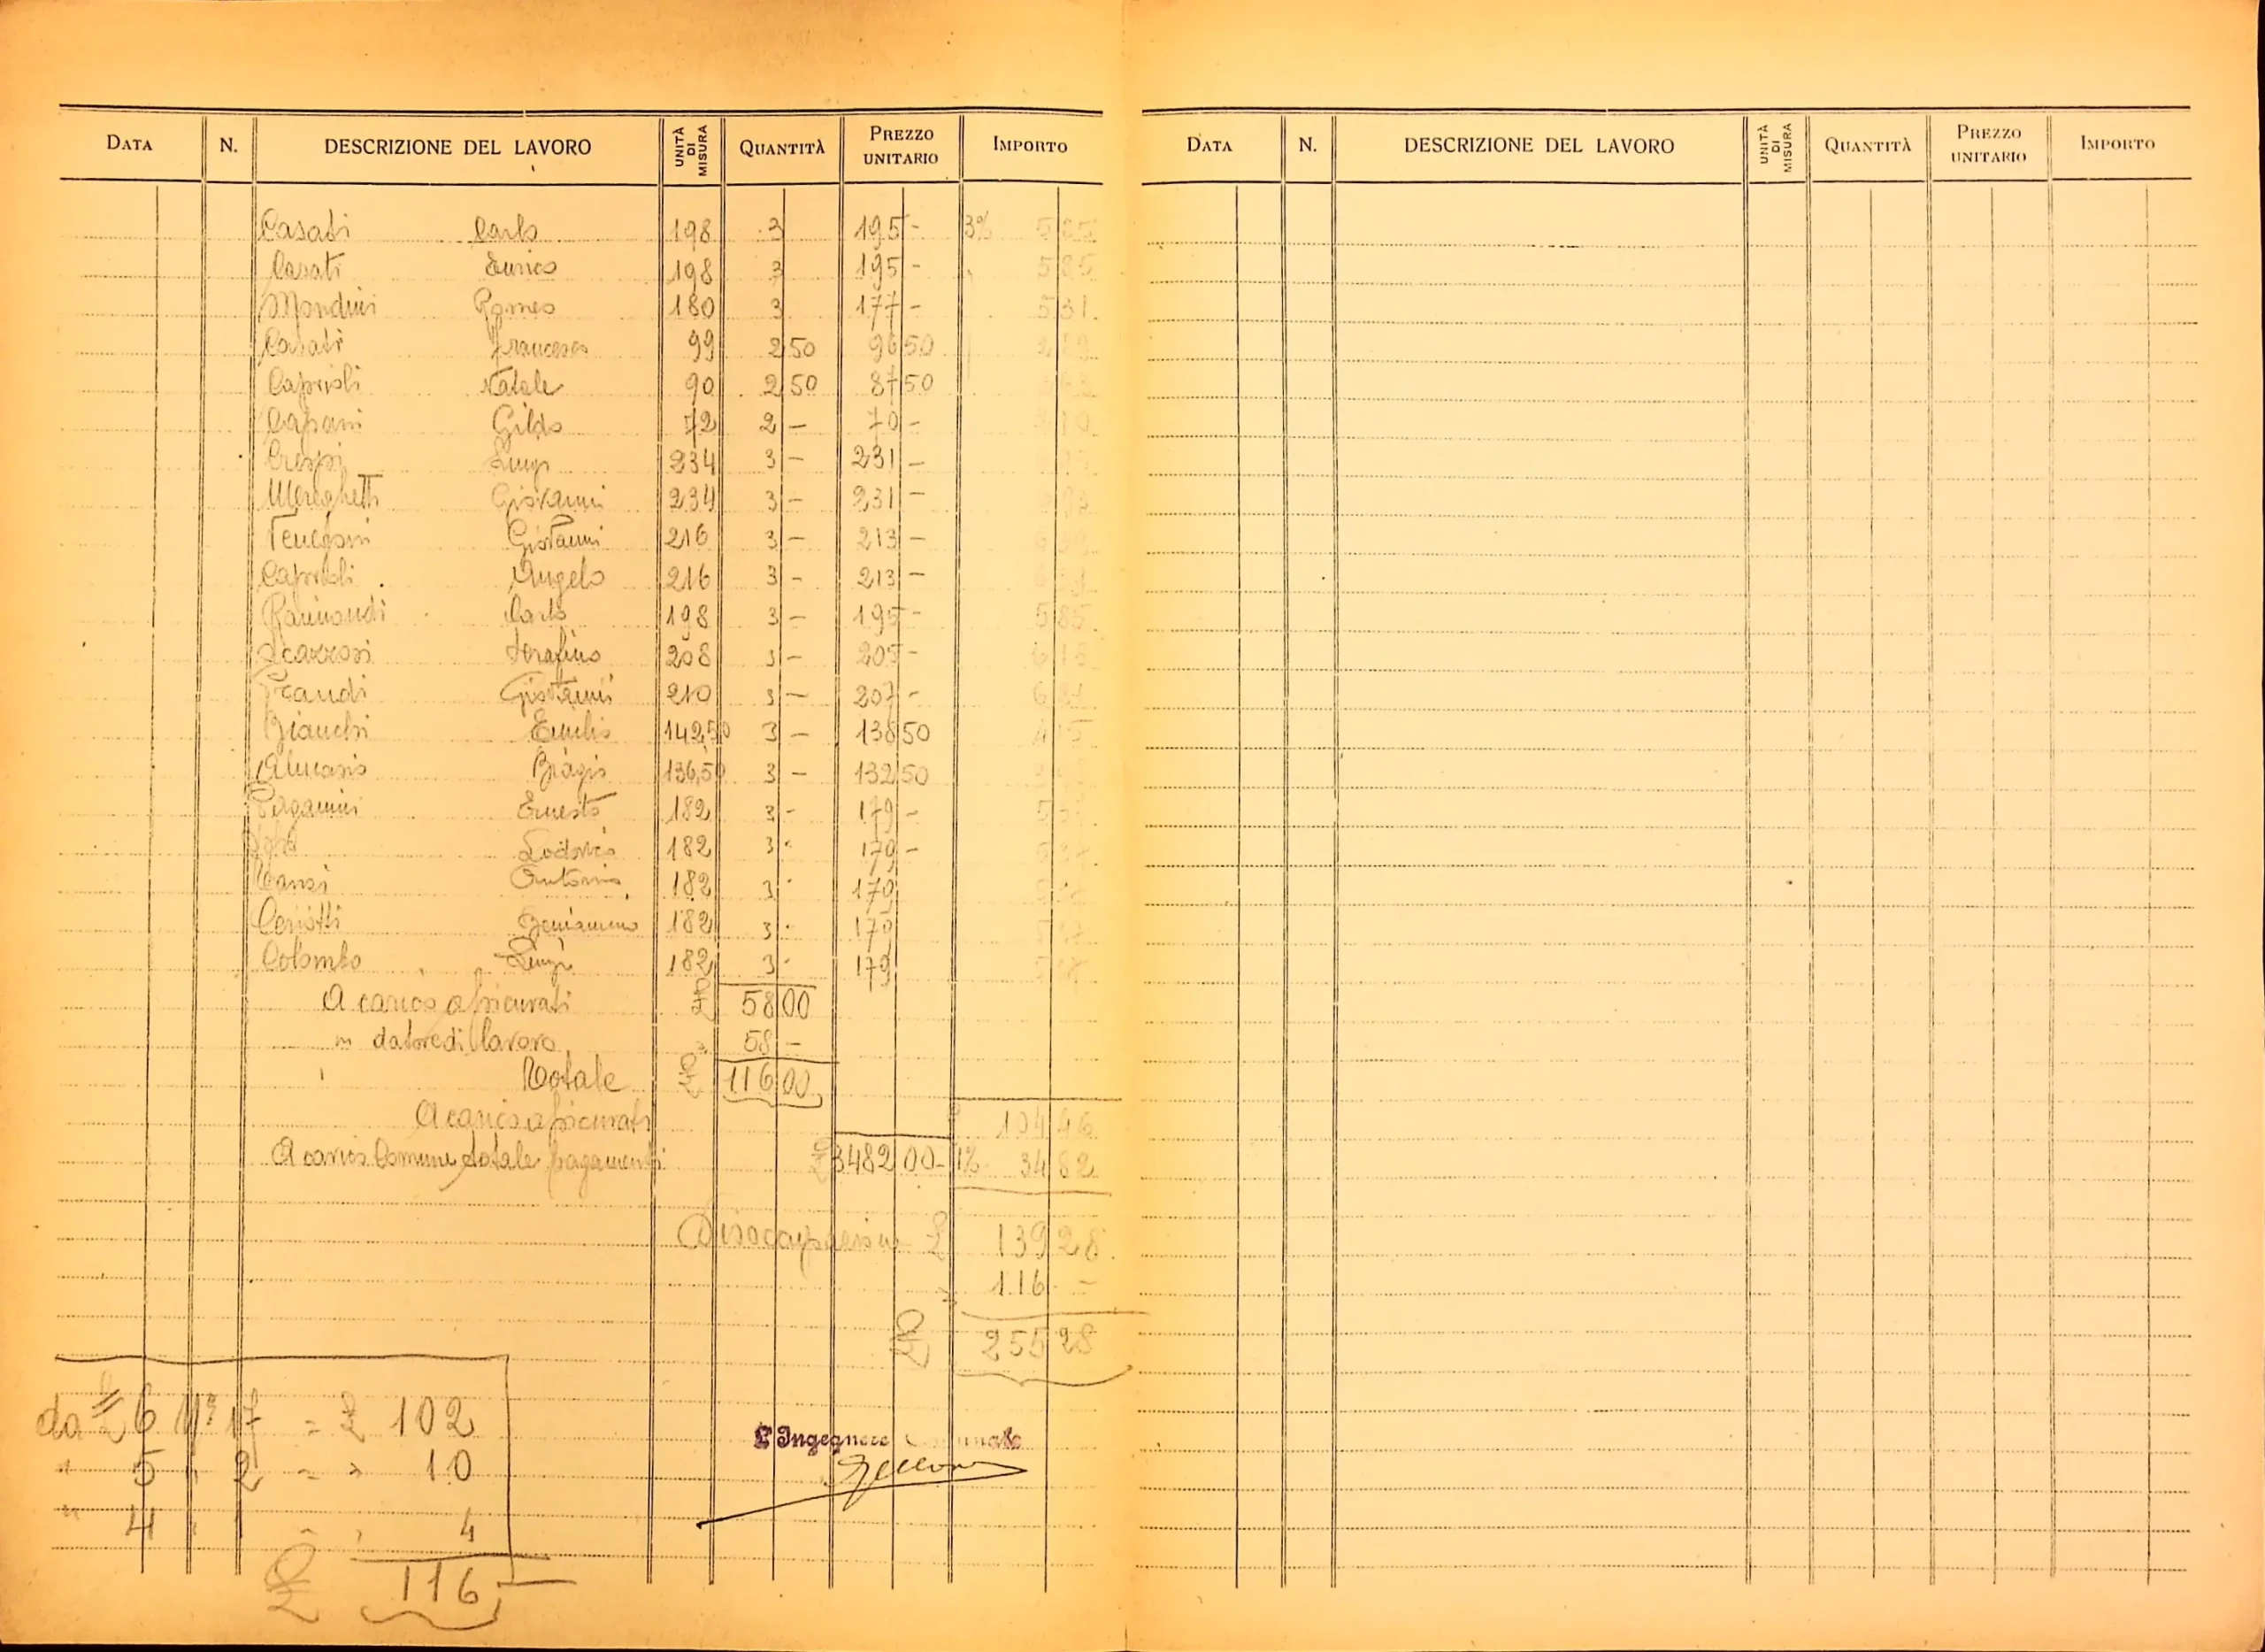 DATA N. DESCRIZIONE DEL LAVORO UNITÀ DI MISURA QUANTITÀ PREZZO UNITARIO IMPORTO
Casati Carlo 198 3 195 - 3% 5 85
Casati Enrico 198 3 195 - 5 85
Mondini Romeo 180 3 177 - 5 31
Casati Francesco 99 2 50 96 50
Caprioli Natale 90 2 50 87 50
Capani Gildo 72 2 - 70 - 2 10
Crespi Luigi 234 3 - 231 -
Mereghetti Giovanni 234 3 - 231 - 93
Giovanni 216 3 - 213 - 6 39
Caprioli Angelo 216 3 - 213 -
Raimondi Carlo 198 3 - 195 - 5 85
Serafino 208 3 - 205 - 6 15
Grandi Giovanni 210 3 - 207 - 6 21
Bianchi Emilio 142,50 3 - 138 50 4 15
Biagio 136,50 3 - 132 50
Paganini Ernesto 182 3 - 179 - 5 37
Lodovico 182 3 179 - 5 37
Antonio 182 3 179
Ceriotti Beniamino 182 3 179
Colombo Luigi 182 3 179
A carico assicurati £ 58 00
" datore di lavoro " 58 -
Totale £ 116 00
A carico assicurati 104 46
A carico Comune totale pagamenti £ 3482 00 - 1% 34 82
Disoccupazione £ 139 28
" 116 -
£ 255 28
da £ 6 N° 17 = £ 102
" 5 " 2 = " 10
" 4 " 1 = " 4
£ 116
L'Ingegnere Comunale
DATA N. DESCRIZIONE DEL LAVORO UNITÀ DI MISURA QUANTITÀ PREZZO UNITARIO IMPORTO